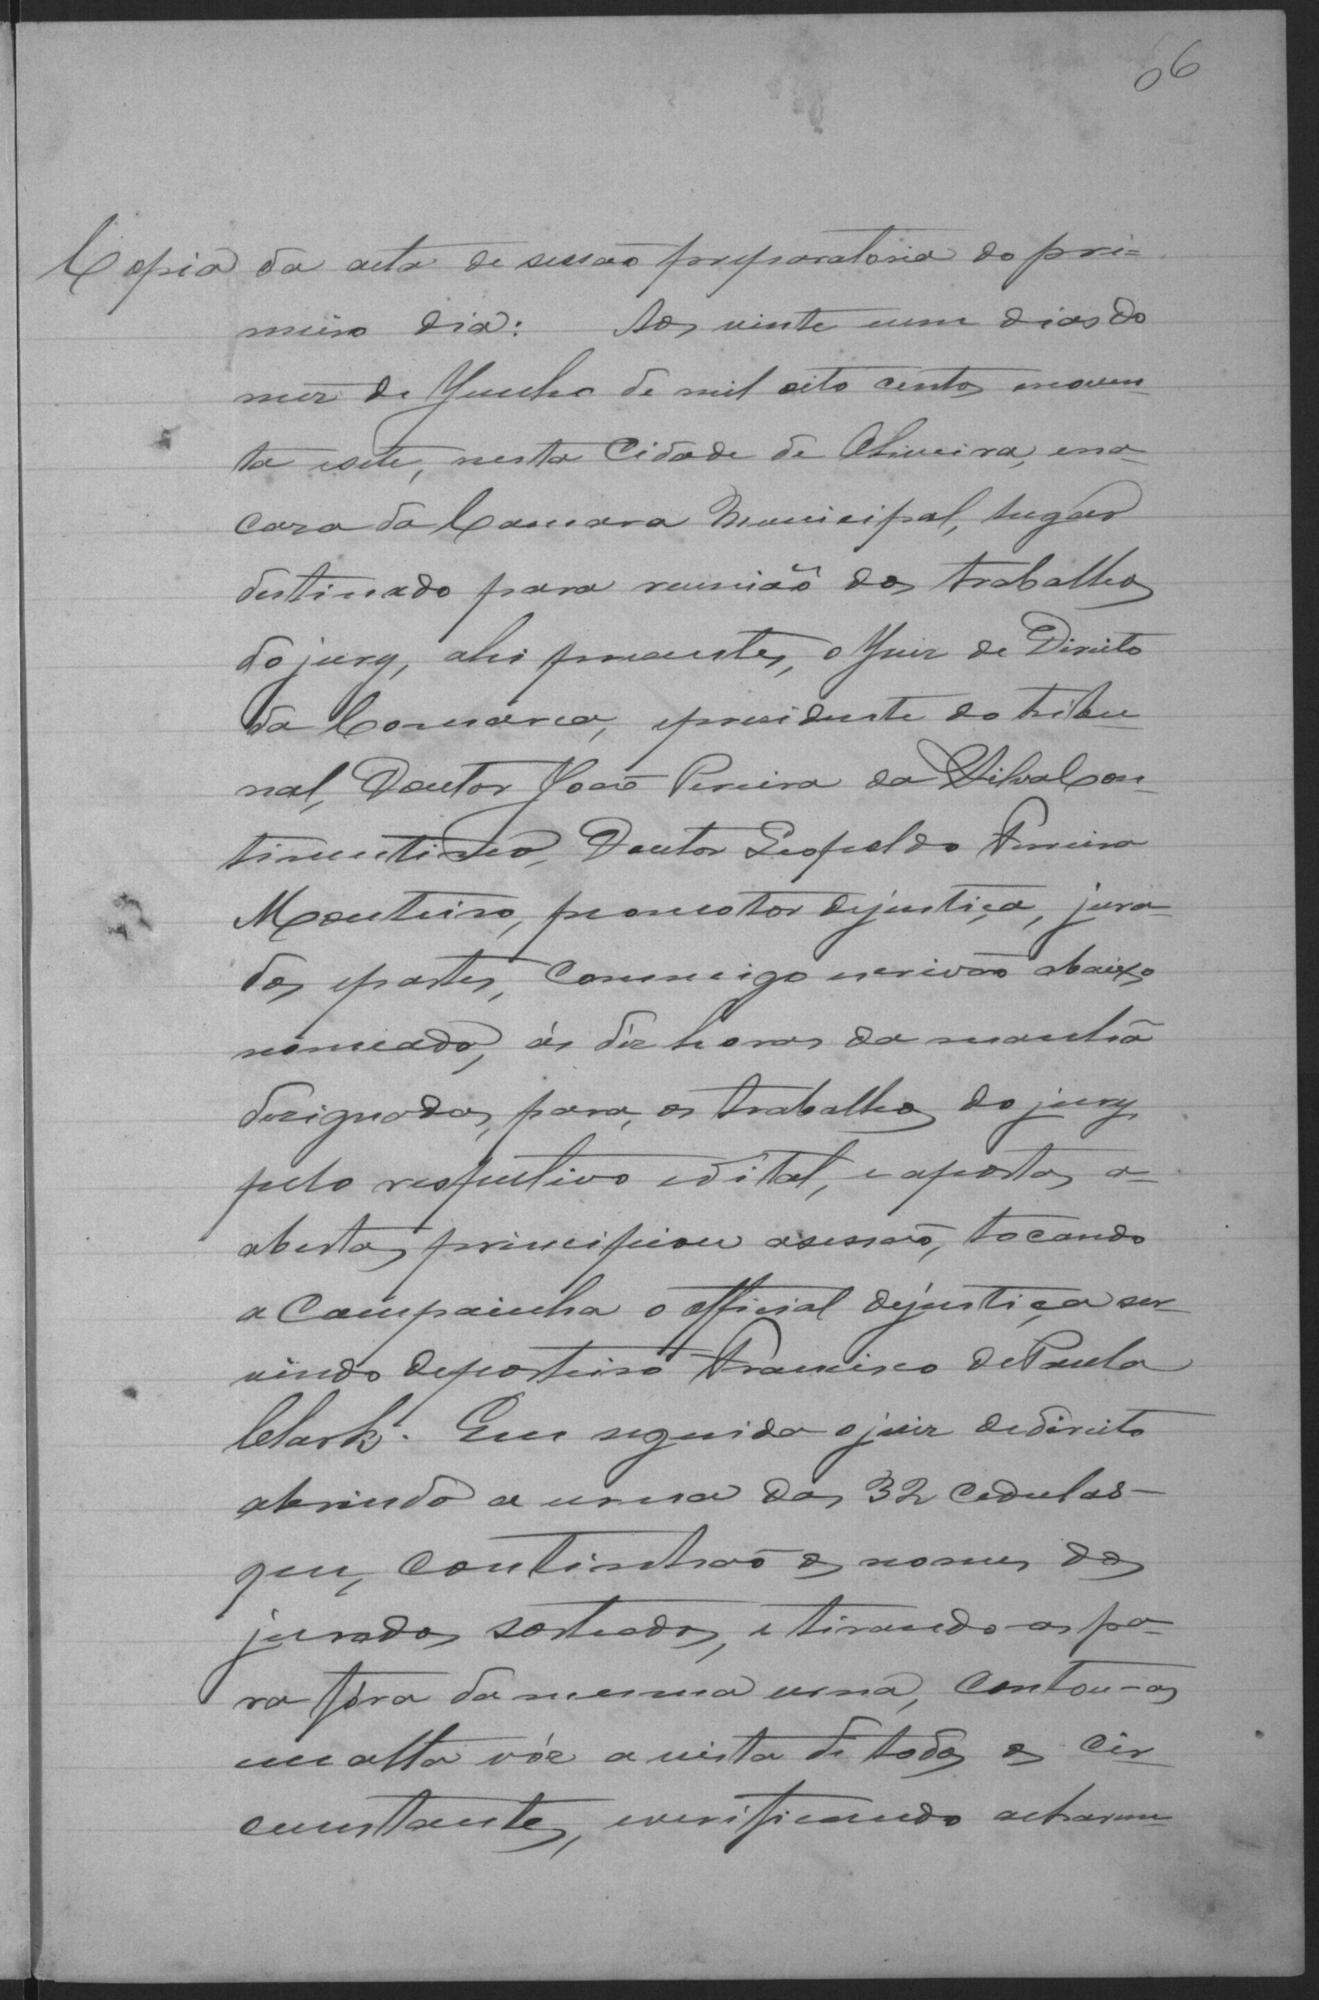 66
Copia da acta de sessão preparatoria do pri=
meiro dia: Aos vinte eum dias do
mez de Junho de mil oito centos enoven-
ta esete, nesta Cidade de Oliveira, ena-
caza da Camara Municipal, lugar
destinado para reunião dos trabalhos
do jury, ahi presentes, o Juiz de Direito
da Comarca, epresidente do tribu-
nal, Doutor João Pereira da Silva Con-
tinentino, Doutor Leopoldo Ferreira
Monteiro, promotor dejustiça, jura-
dos epartes, commigo escrivão abaixo
nomeado, ás déz horas da manhã
dezignadas, para, os trabalhos do jury
pelo respectivo edital, e aportas a-
abertas principiou asessão, tocando
a Campainha o official dejustiça ser-
vindo deporteiro Francisco de Paula
Clark. Em seguida ojuiz dedireito
abrindo a urna das 32 cedulas-
que, continhão os nomes dos
jurados sorteados, e tirando-as pa-
ra fóra da mesma urna, contou-as
em alta vóz a vista de todos os cir-
cunstantes, everificando acharem-